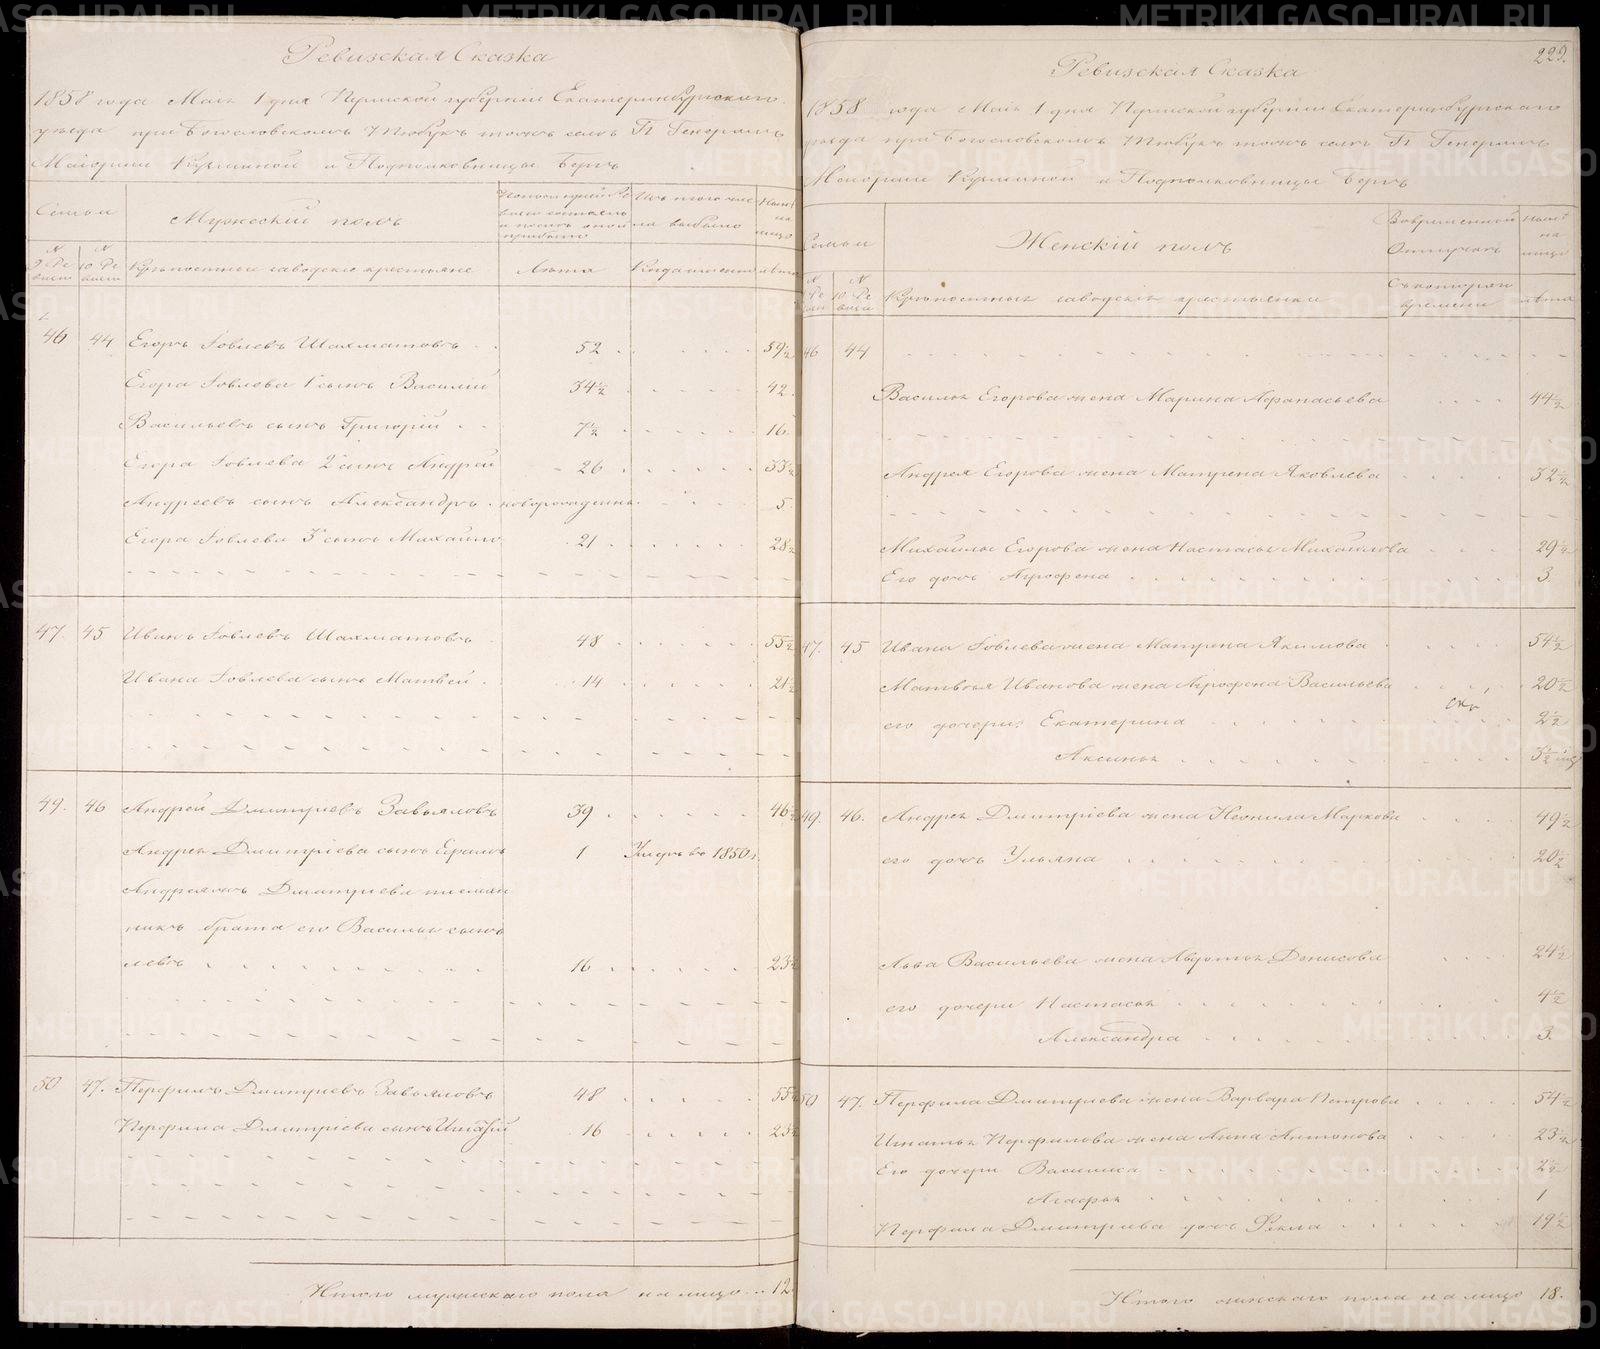 Ревизская Сказка
1858 года Маiя 1 дня Пермской губернiи Екатеринбургскаго
уезда при Богословскомъ Тюбукъ тожъ селъ Г. Генералъ
Маiорши и Подполковницы Бергъ
Семьи
Мужескiй полъ
Изъ того числа выбыло
Ныне на лицо
Крепостные заводскiе крестьяне
Лета
Когда именно
лета
46 44 Егоръ Iовлевъ Шахматовъ 52 59½
Егора Iовлева 1 сынъ Василiй 34½ 42
Васильевъ сынъ Григорiй 7½ 16
Егора Iовлева 2 сынъ Андрей 26 33½
Андреевъ сынъ Александръ новорожденны 5
Егора Iовлева 3 сынъ Михайло 21 28½
47. 45 Иванъ Iовлевъ Шахматовъ 48 55½
Ивана Iовлева сынъ Матвей 14 21½
49. 46 Андрей Дмитрiевъ Завьяловъ 39 46½
Андрея Дмитрiева сынъ Ефимъ 1 Умеръ въ 1850 г.
Андреяжъ Дмитрiева племян
никъ брата его Василья сынъ
Левъ 16 23½
50 47. Перфилъ Дмитрiевъ Завьяловъ 48 55½
Перфила Дмитрiева сынъ Игнатiй 16 23½
Итого мужескаго пола на лицо 12
229.
Ревизская Сказка
1858 года Маiя 1 дня Пермской губернiи Екатеринбургскаго
уезда при Богословскомъ Тюбукъ тожъ селъ Г. Генералъ
Маiорши и Подполковницы Бергъ
Семьи
Женскiй полъ
Во временной отлучке
Ныне на лицо
Крепостныя заводскiя крестьянки
Съ котораго времени
лета
46 44
Василья Егорова жена Марина Афанасьева 44½
Андрея Егорова жена Матрена Яковлева 32½
Михайлы Егорова жена Настасья Михайлова 29½
Его дочь Агрофена 3.
47. 45 Ивана Iовлева жена Матрена Якимова 54½
Матвея Иванова жена Агрофена Васильева 20½
его дочери: Екатерина 2½
Аксинья 3½
49. 46. Андрея Дмитрiева жена Неонила Маркова 49½
его дочь Ульяна 20½
Льва Васильева жена Авдотья Денисова 24½
его дочери Настасья 4½
Александра 3.
50 47. Перфила Дмитрiева жена Варвара Петрова 54½
Игнатья Перфильова жена Анна Антонова 23½
Его дочери Василиса 2½
Агафья 1
Перфила Дмитрiева дочь Фекла 19½
Итого женскаго пола на лицо 18.
METRIKI.GASO-URAL.RU